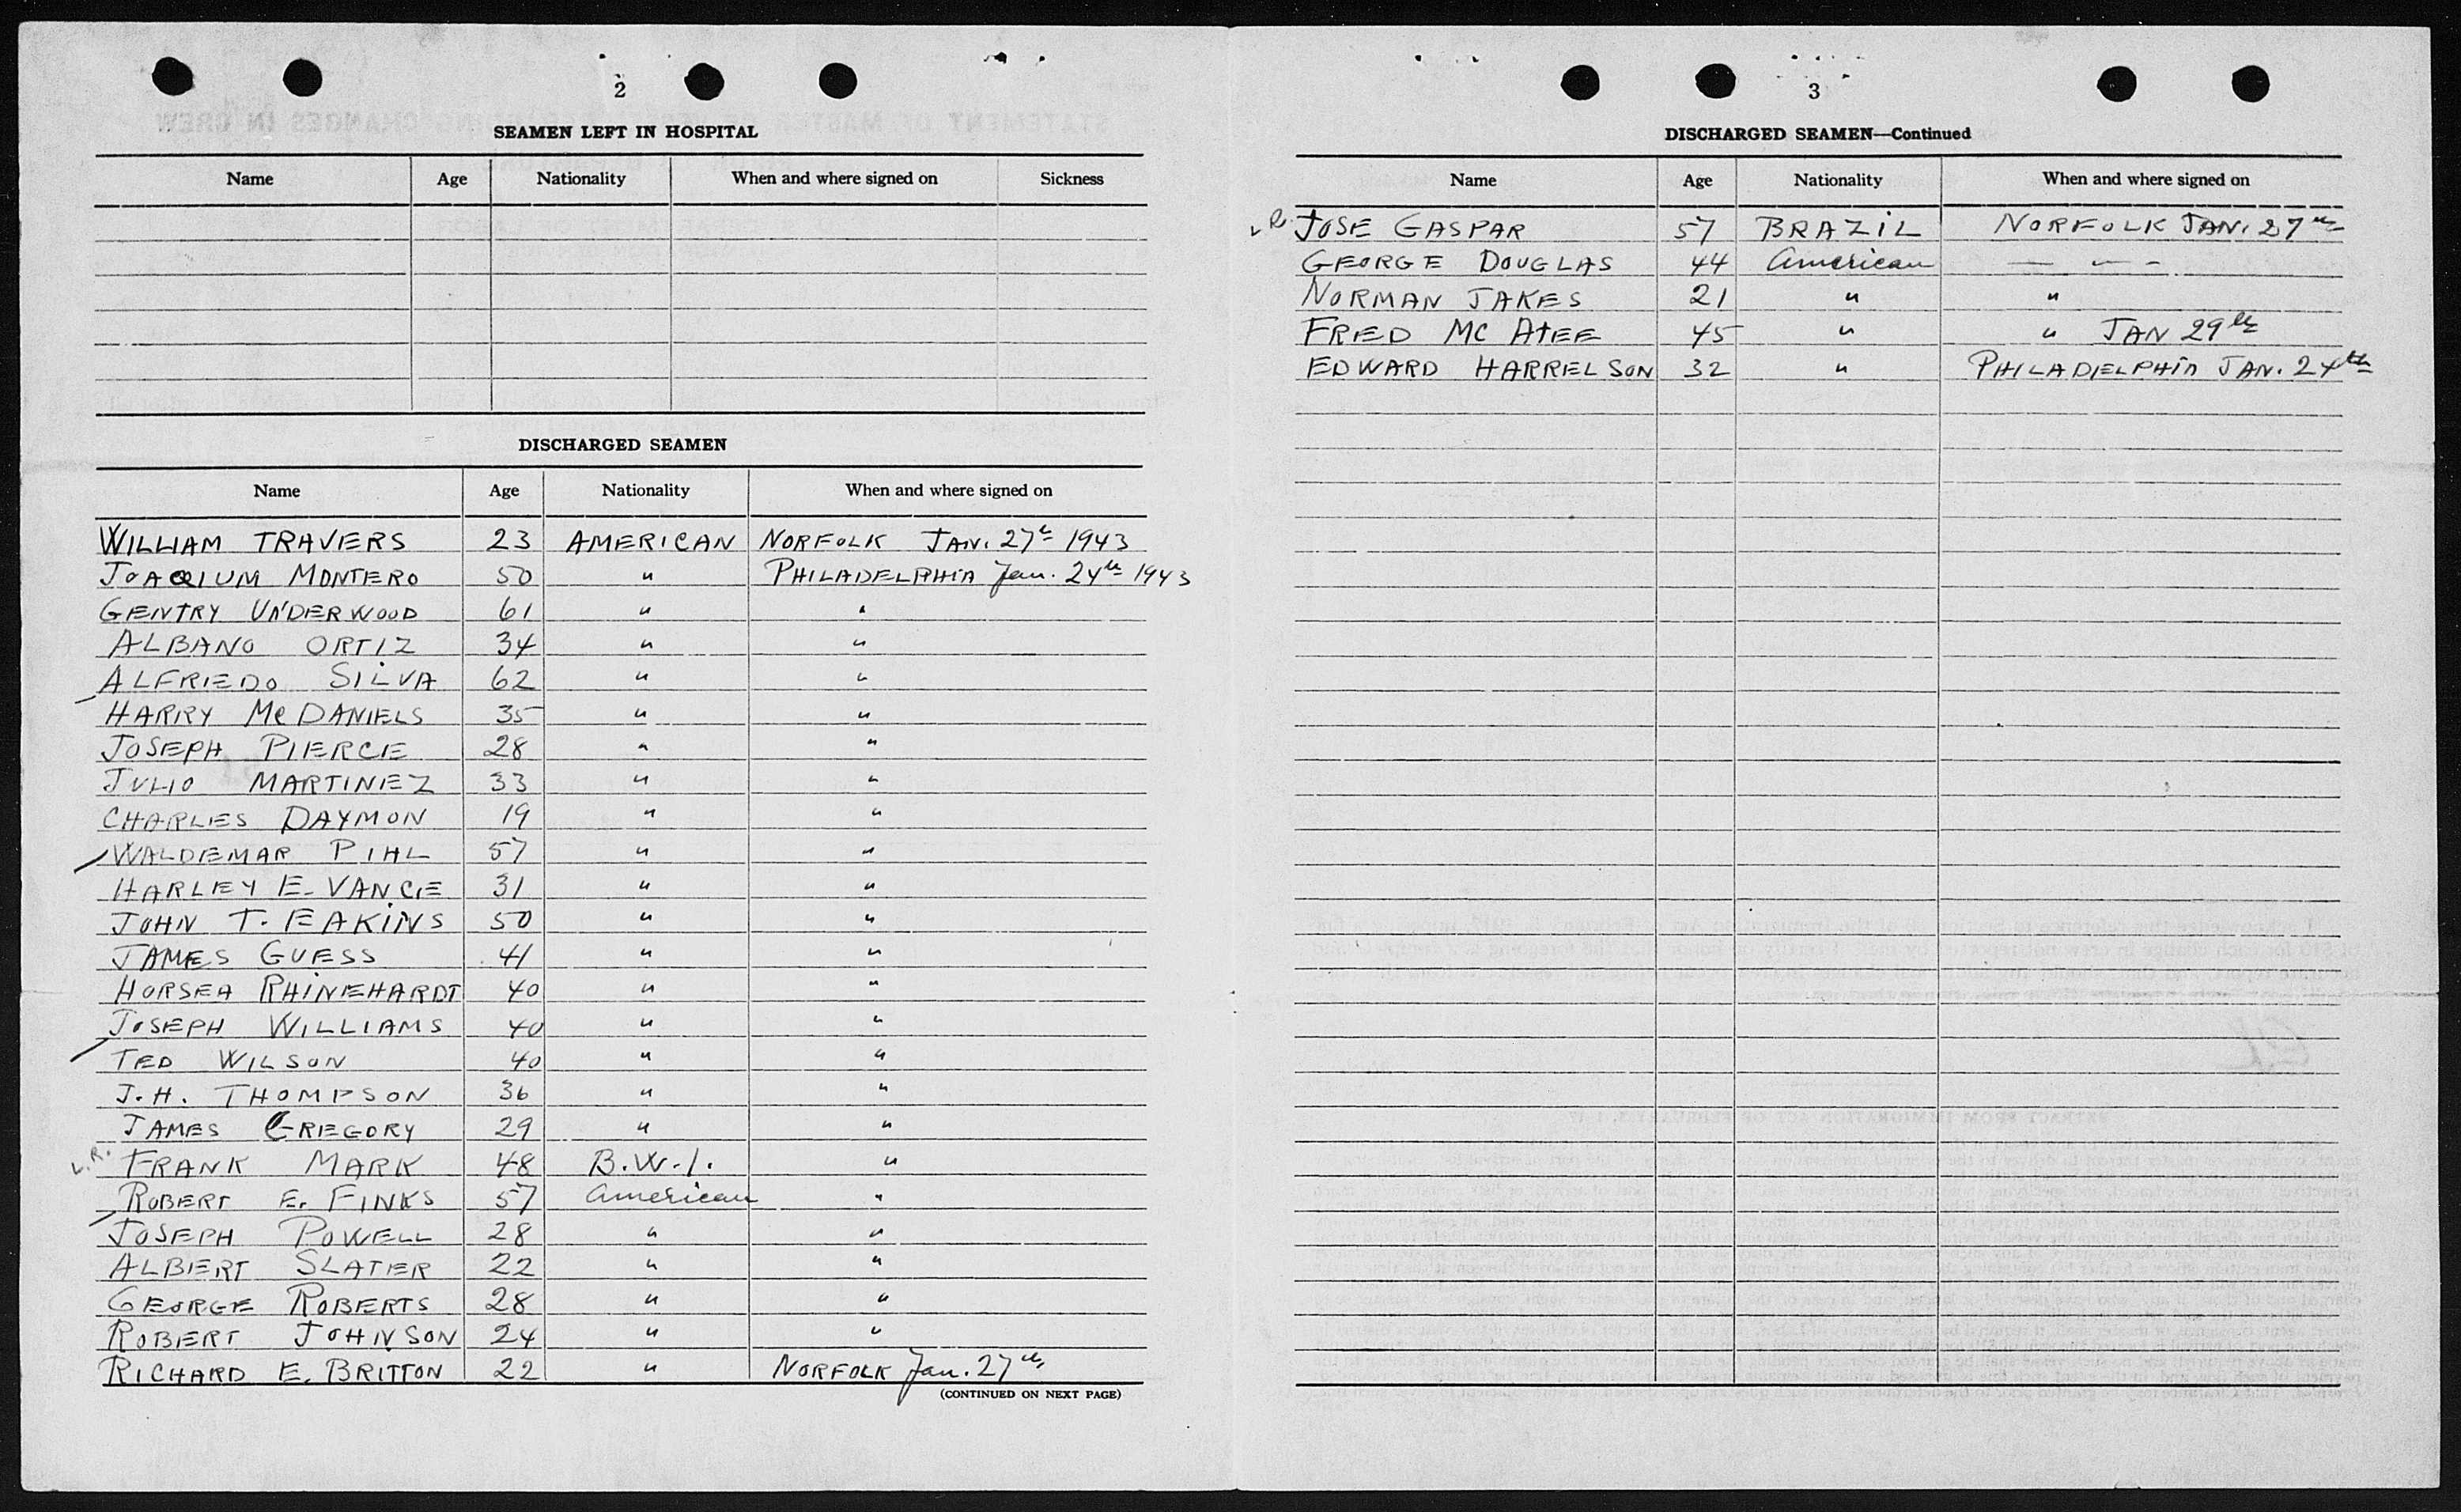 2
SEAMEN LEFT IN HOSPITAL
Name Age Nationality When and where signed on Sickness
DISCHARGED SEAMEN
Name Age Nationality When and where signed on
WILLIAM TRAVERS 23 AMERICAN NORFOLK JAN. 27th 1943
JOAQIUM MONTERO 50 " PHILADELPHIA Jan. 24th 1943
GENTRY UNDERWOOD 61 " "
ALBANO ORTIZ 34 " "
ALFREDO SILVA 62 " "
HARRY McDANIELS 35 " "
JOSEPH PIERCE 28 " "
JULIO MARTINEZ 33 " "
CHARLES DAYMON 19 " "
WALDEMAR PIHL 57 " "
HARLEY E. VANCE 31 " "
JOHN T. EAKINS 50 " "
JAMES GUESS 41 " "
HORSEA RHINEHARDT 40 " "
JOSEPH WILLIAMS 40 " "
TED WILSON 40 " "
J.H. THOMPSON 36 " "
JAMES GREGORY 29 " "
L.R. FRANK MARK 48 B.W.I. "
ROBERT E. FINKS 57 American "
JOSEPH POWELL 28 " "
ALBERT SLATER 22 " "
GEORGE ROBERTS 28 " "
ROBERT JOHNSON 24 " "
RICHARD E. BRITTON 22 " NORFOLK Jan. 27th
(CONTINUED ON NEXT PAGE)
3
DISCHARGED SEAMEN—Continued
Name Age Nationality When and where signed on
JOSE GASPAR 57 BRAZIL NORFOLK JAN. 27th
GEORGE DOUGLAS 44 American — " —
NORMAN JAKES 21 " "
FRED MC ATEE 45 " " JAN 29th
EDWARD HARRELSON 32 " PHILADELPHIA JAN. 24th